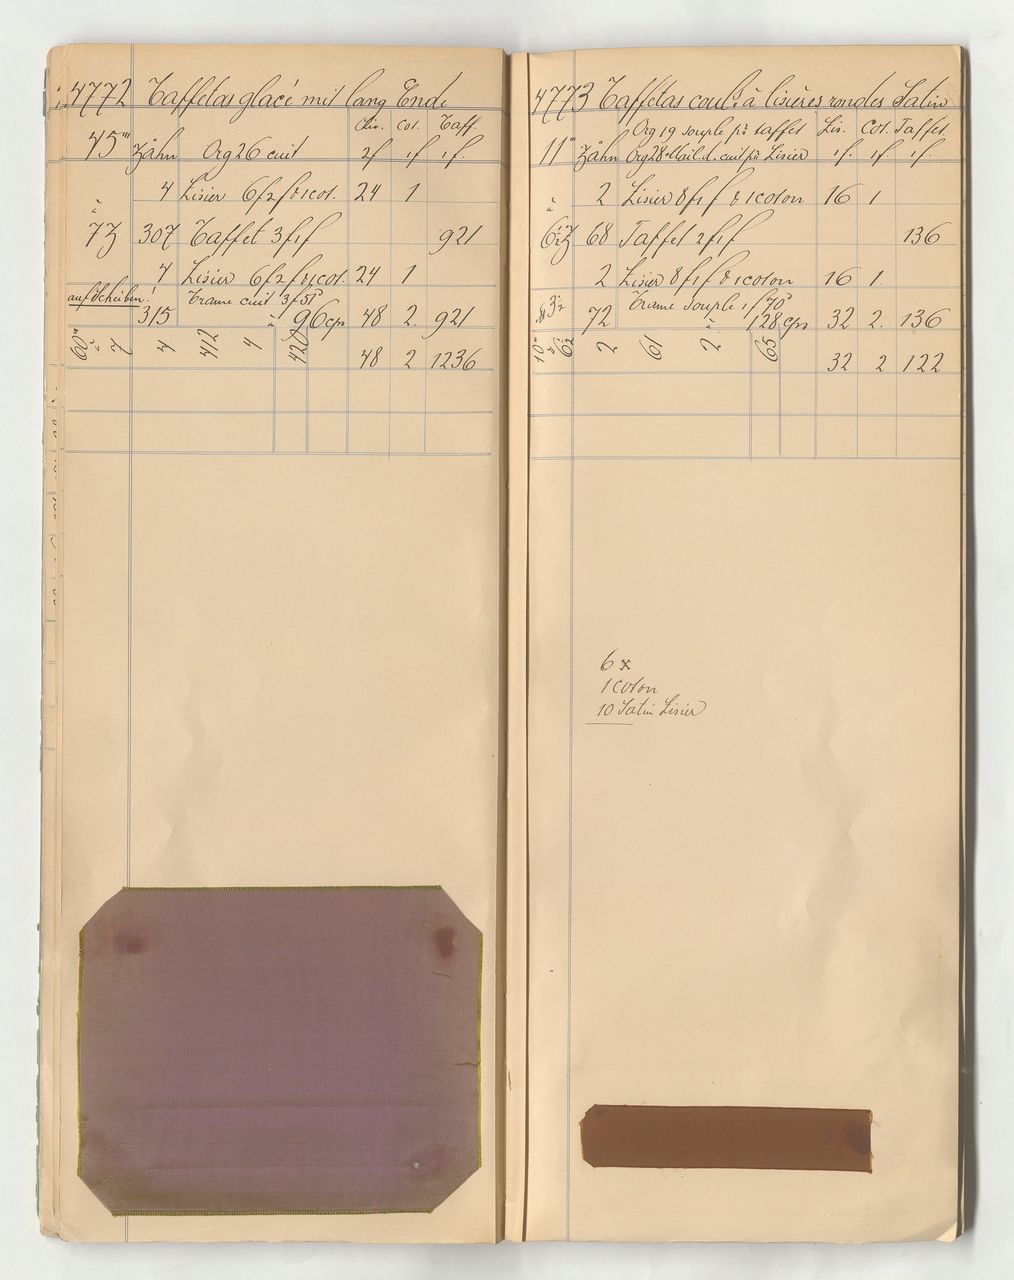 4772 Taffetas glacé mit lang Ende
Lis. Cot. Taff.
75''' Zähn Org 26 cuit 2f 1f 1f.
4 Lisier 6f2f & 1 cot. 24 1
à
7Z 307 Taffet 3f1f 921
4 Lisier 6f2f & 1 cot. 24 1
auf Scheiben! Trame cuit 3f 51°
315 à 96 cps 48 2. 921
60''' à 7 4 412 4 420 48 2 1236
4773 Taffetas coul. à lisières rondes Satin
Org 19 souple pr taffet Lis. Cot. Taffet
11''' Zähn Org 28 Mail. d. cuit pr Lisier 1f. 1f. 1f.
2 Lisier 8f1f & 1 coton 16 1
à
6½Z 68 Taffet 2f1f 136
2 Lisier 8f1f & 1 coton 16 1.
Trame souple 1f 70°
72 à 128 cps 32 2. 136
10''' à 6½ 2 61 2 65 32 2 122
6 x
1 coton
10 Satin Lisier